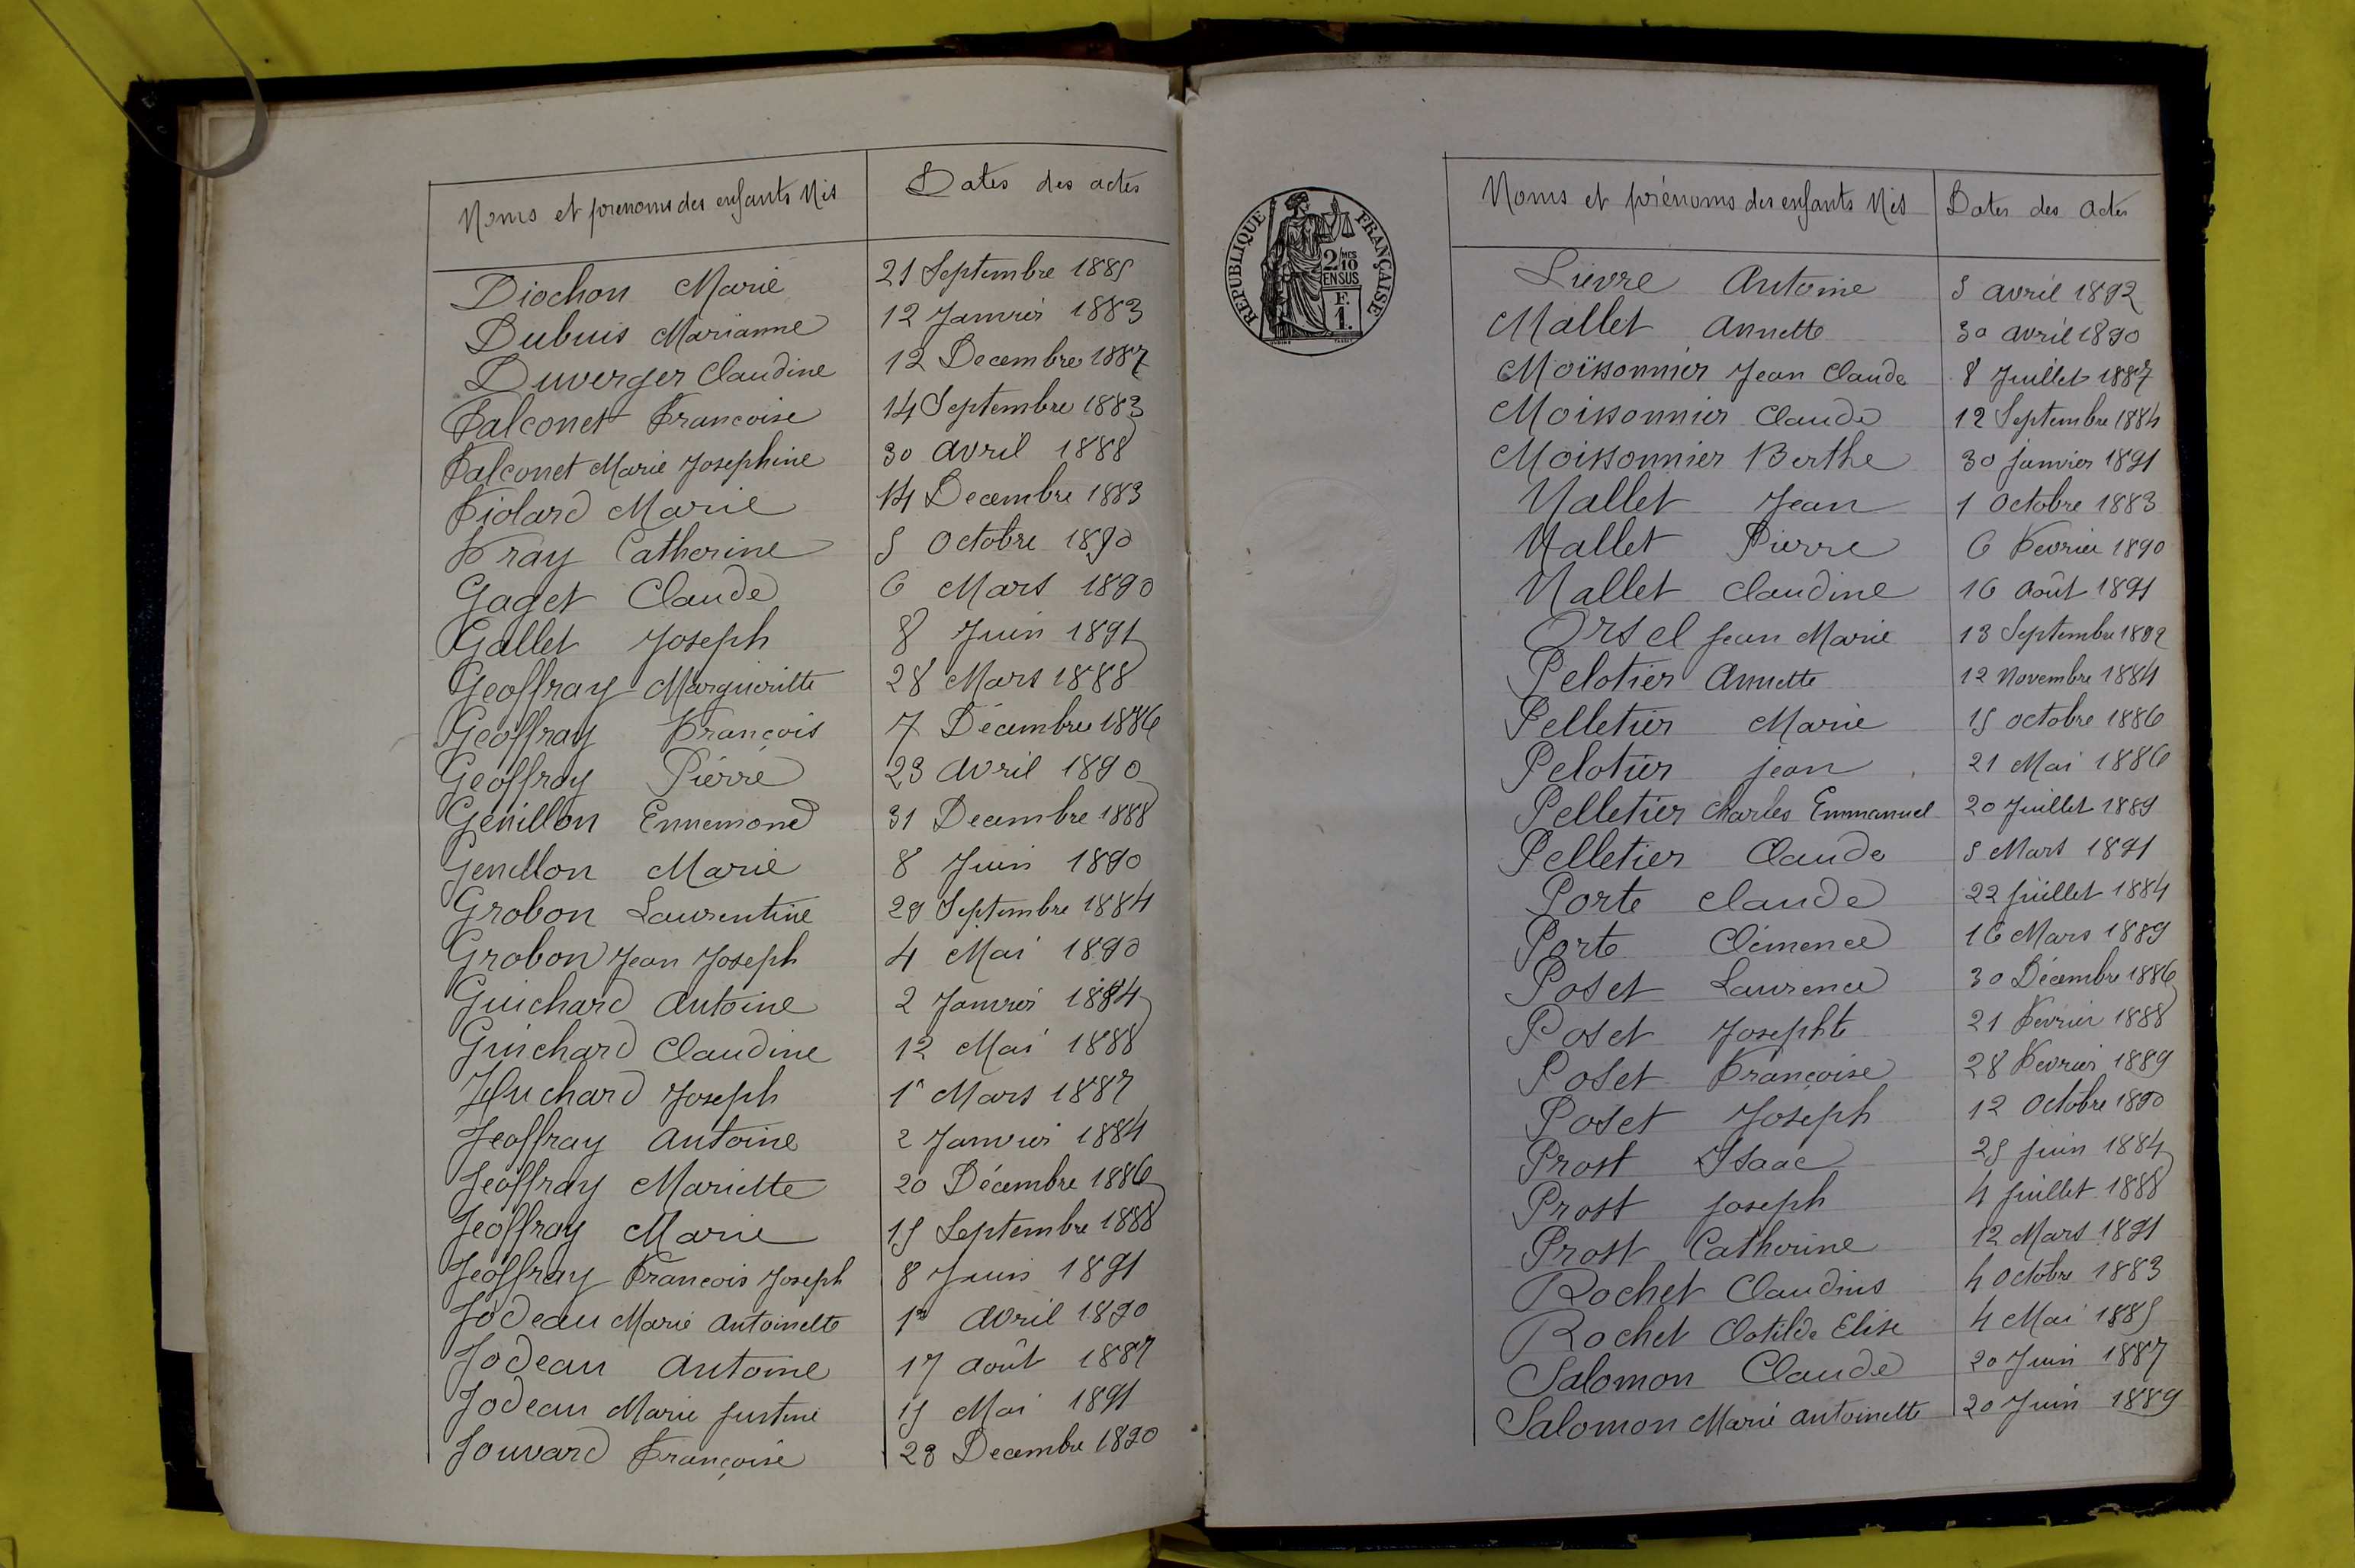 Noms et prenoms des enfants Nés Dates des actes
Diochon Marie 21 Septembre 1885
Dubuis Marianne 12 Janvier 1883
Duverger Claudine 12 Decembre 1887
Falconet Francoise 14 Septembre 1883
Falconet Marie Josephine 30 avril 1888
Fiolard Marie 14 Decembre 1883
Fray Catherine 5 Octobre 1890
Gaget Claude 6 Mars 1890
Gallet Joseph 8 Juin 1891
Geoffray Margueritte 28 Mars 1888
Geoffray François 7 Décembre 1886
Geoffray Pierre 23 avril 1890
Genillon Ennemond 31 Decembre 1888
Genillon Marie 8 Juin 1890
Grobon Laurentine 29 Septembre 1884
Grobon Jean Joseph 4 Mai 1890
Guichard Antoine 2 Janvier 1884
Guichard Claudine 12 Mai 1888
Huchard Joseph 1r Mars 1887
Jeoffray Antoine 2 Janvier 1884
Jeoffray Mariette 20 Décembre 1886
Jeoffray Marie 15 Septembre 1888
Jeoffray Francois Joseph 8 Juin 1891
Jodeau Marie Antoinette 1er avril 1890
Jodeau Antoine 17 août 1887
Jodeau Marie Justine 15 Mai 1891
Jouvard Françoise 28 Decembre 1890
REPUBLIQUE FRANÇAISE
2/10 MES
EN SUS
F.
1.
Noms et prénoms des enfants Nés Dates des actes
Lievre Antoine 5 avril 1892
Mallet Annette 30 avril 1890
Moïssonnier Jean Claude 8 Juillet 1887
Moissonnier Claude 12 Septembre 1884
Moissonnier Berthe 30 janvier 1891
Nallet Jean 1 Octobre 1883
Nallet Pierre 6 Fevrier 1890
Nallet Claudine 16 Août 1891
Orsel Jean Marie 13 Septembre 1892
Pelotier Annette 12 Novembre 1884
Pelletier Marie 15 octobre 1886
Pelotier jean 21 Mai 1886
Pelletier Charles Emmanuel 20 Juillet 1889
Pelletier Claude 5 Mars 1891
Porte Claude 22 juillet 1884
Porte Clémence 16 Mars 1889
Poset Laurence 30 Décembre 1886
Poset Josephte 21 Fevrier 1888
Poset Françoise 28 Fevrier 1889
Poset Joseph 12 Octobre 1890
Prost Isaac 25 juin 1884
Prost Joseph 4 Juillet 1888
Prost Catherine 12 Mars 1891
Rochet Claudius 4 Octobre 1883
Rochet Clotilde Elise 4 Mai 1885
Salomon Claude 20 Juin 1887
Salomon Marie Antoinette 20 Juin 1889